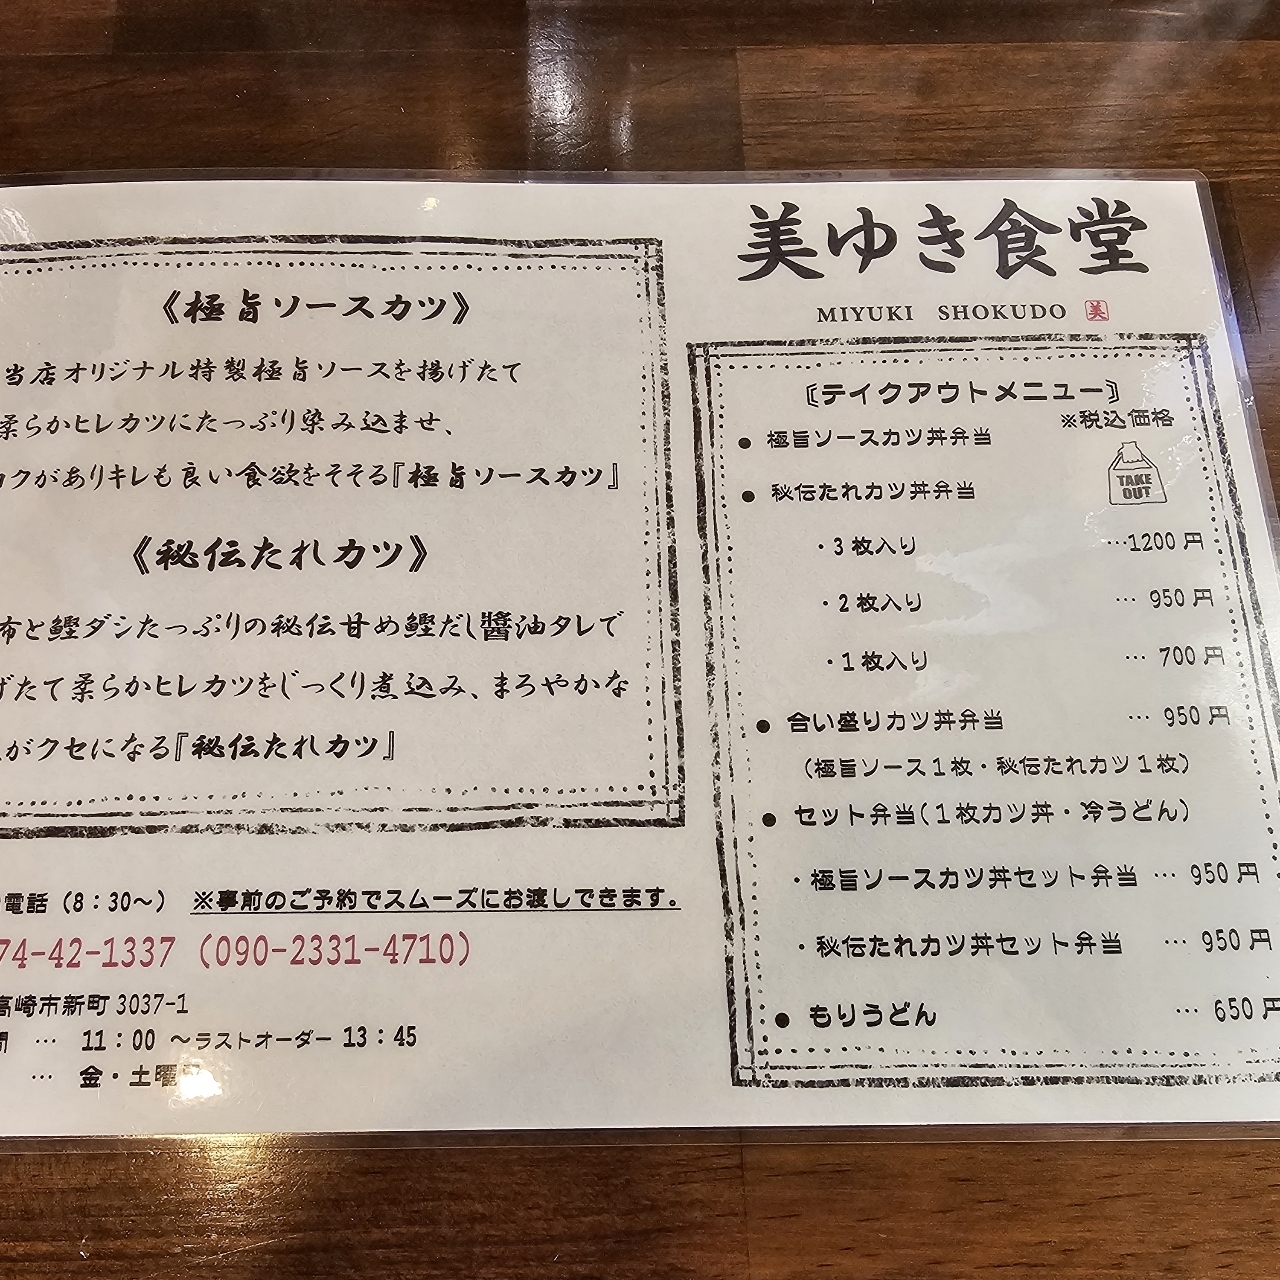 《極旨ソースカツ》
当店オリジナル特製極旨ソースを揚げたて
柔らかヒレカツにたっぷり染み込ませ、
コクがありキレも良い食欲をそそる『極旨ソースカツ』
《秘伝たれカツ》
布と鰹ダシたっぷりの秘伝甘め鰹だし醬油タレで
げたて柔らかヒレカツをじっくり煮込み、まろやかな
がクセになる『秘伝たれカツ』
電話（8：30～） ※事前のご予約でスムーズにお渡しできます。
74-42-1337（090-2331-4710）
高崎市新町 3037-1
間 … 11：00 ～ラストオーダー 13：45
… 金・土曜
美ゆき食堂
MIYUKI SHOKUDO 美
〘テイクアウトメニュー〙
※税込価格
● 極旨ソースカツ丼弁当
TAKE
OUT
● 秘伝たれカツ丼弁当
・3 枚入り …1200 円
・2 枚入り … 950 円
・1 枚入り … 700 円
● 合い盛りカツ丼弁当 … 950 円
（極旨ソース１枚・秘伝たれカツ１枚）
● セット弁当（１枚カツ丼・冷うどん）
・極旨ソースカツ丼セット弁当 … 950 円
・秘伝たれカツ丼セット弁当 … 950 円
● もりうどん … 650 円